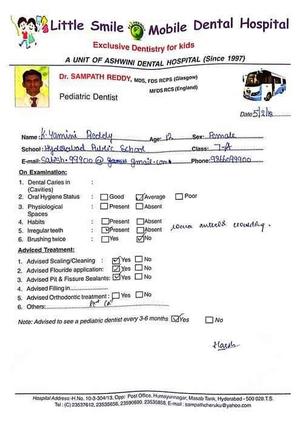 Little Smile Mobile Dental Hospital
Exclusive Dentistry for kids
A UNIT OF ASHWINI DENTAL HOSPITAL (Since 1997)
Dr. SAMPATH REDDY, MDS, FDS RCPS (Glasgow)
MFDS RCS (England)
Pediatric Dentist
Date: 5/2/18
Name: K. Yamini Reddy Age: 12 Sex: Female
School: Hyderabad Public School Class: 7-A
E-mail: @gmail.com Phone:
On Examination:
1. Dental Caries in (Cavities) :
2. Oral Hygiene Status : Good Average Poor
3. Physiological Spaces : Present Absent
4. Habits : Present Absent
5. Irregular teeth : Present Absent lower crowding.
6. Brushing twice : Yes No
Adviced Treatment:
1. Advised Scaling/Cleaning : Yes No
2. Advised Flouride application: Yes No
3. Advised Pit & Fissure Sealants: Yes No
4. Advised Filling in
5. Advised Orthodontic treatment : Yes No
6. Others:
Note: Advised to see a pediatric dentist every 3-6 months Yes No
Hospital Address -H.No. 10-3-304/13, Opp: Post Office, Humayunnagar, Masab Tank, Hyderabad - 500 028 T.S.
Tel: (C) 23537612, 23535656, 23590690, 23535858, E-mail : sampathcheruku@yahoo.com